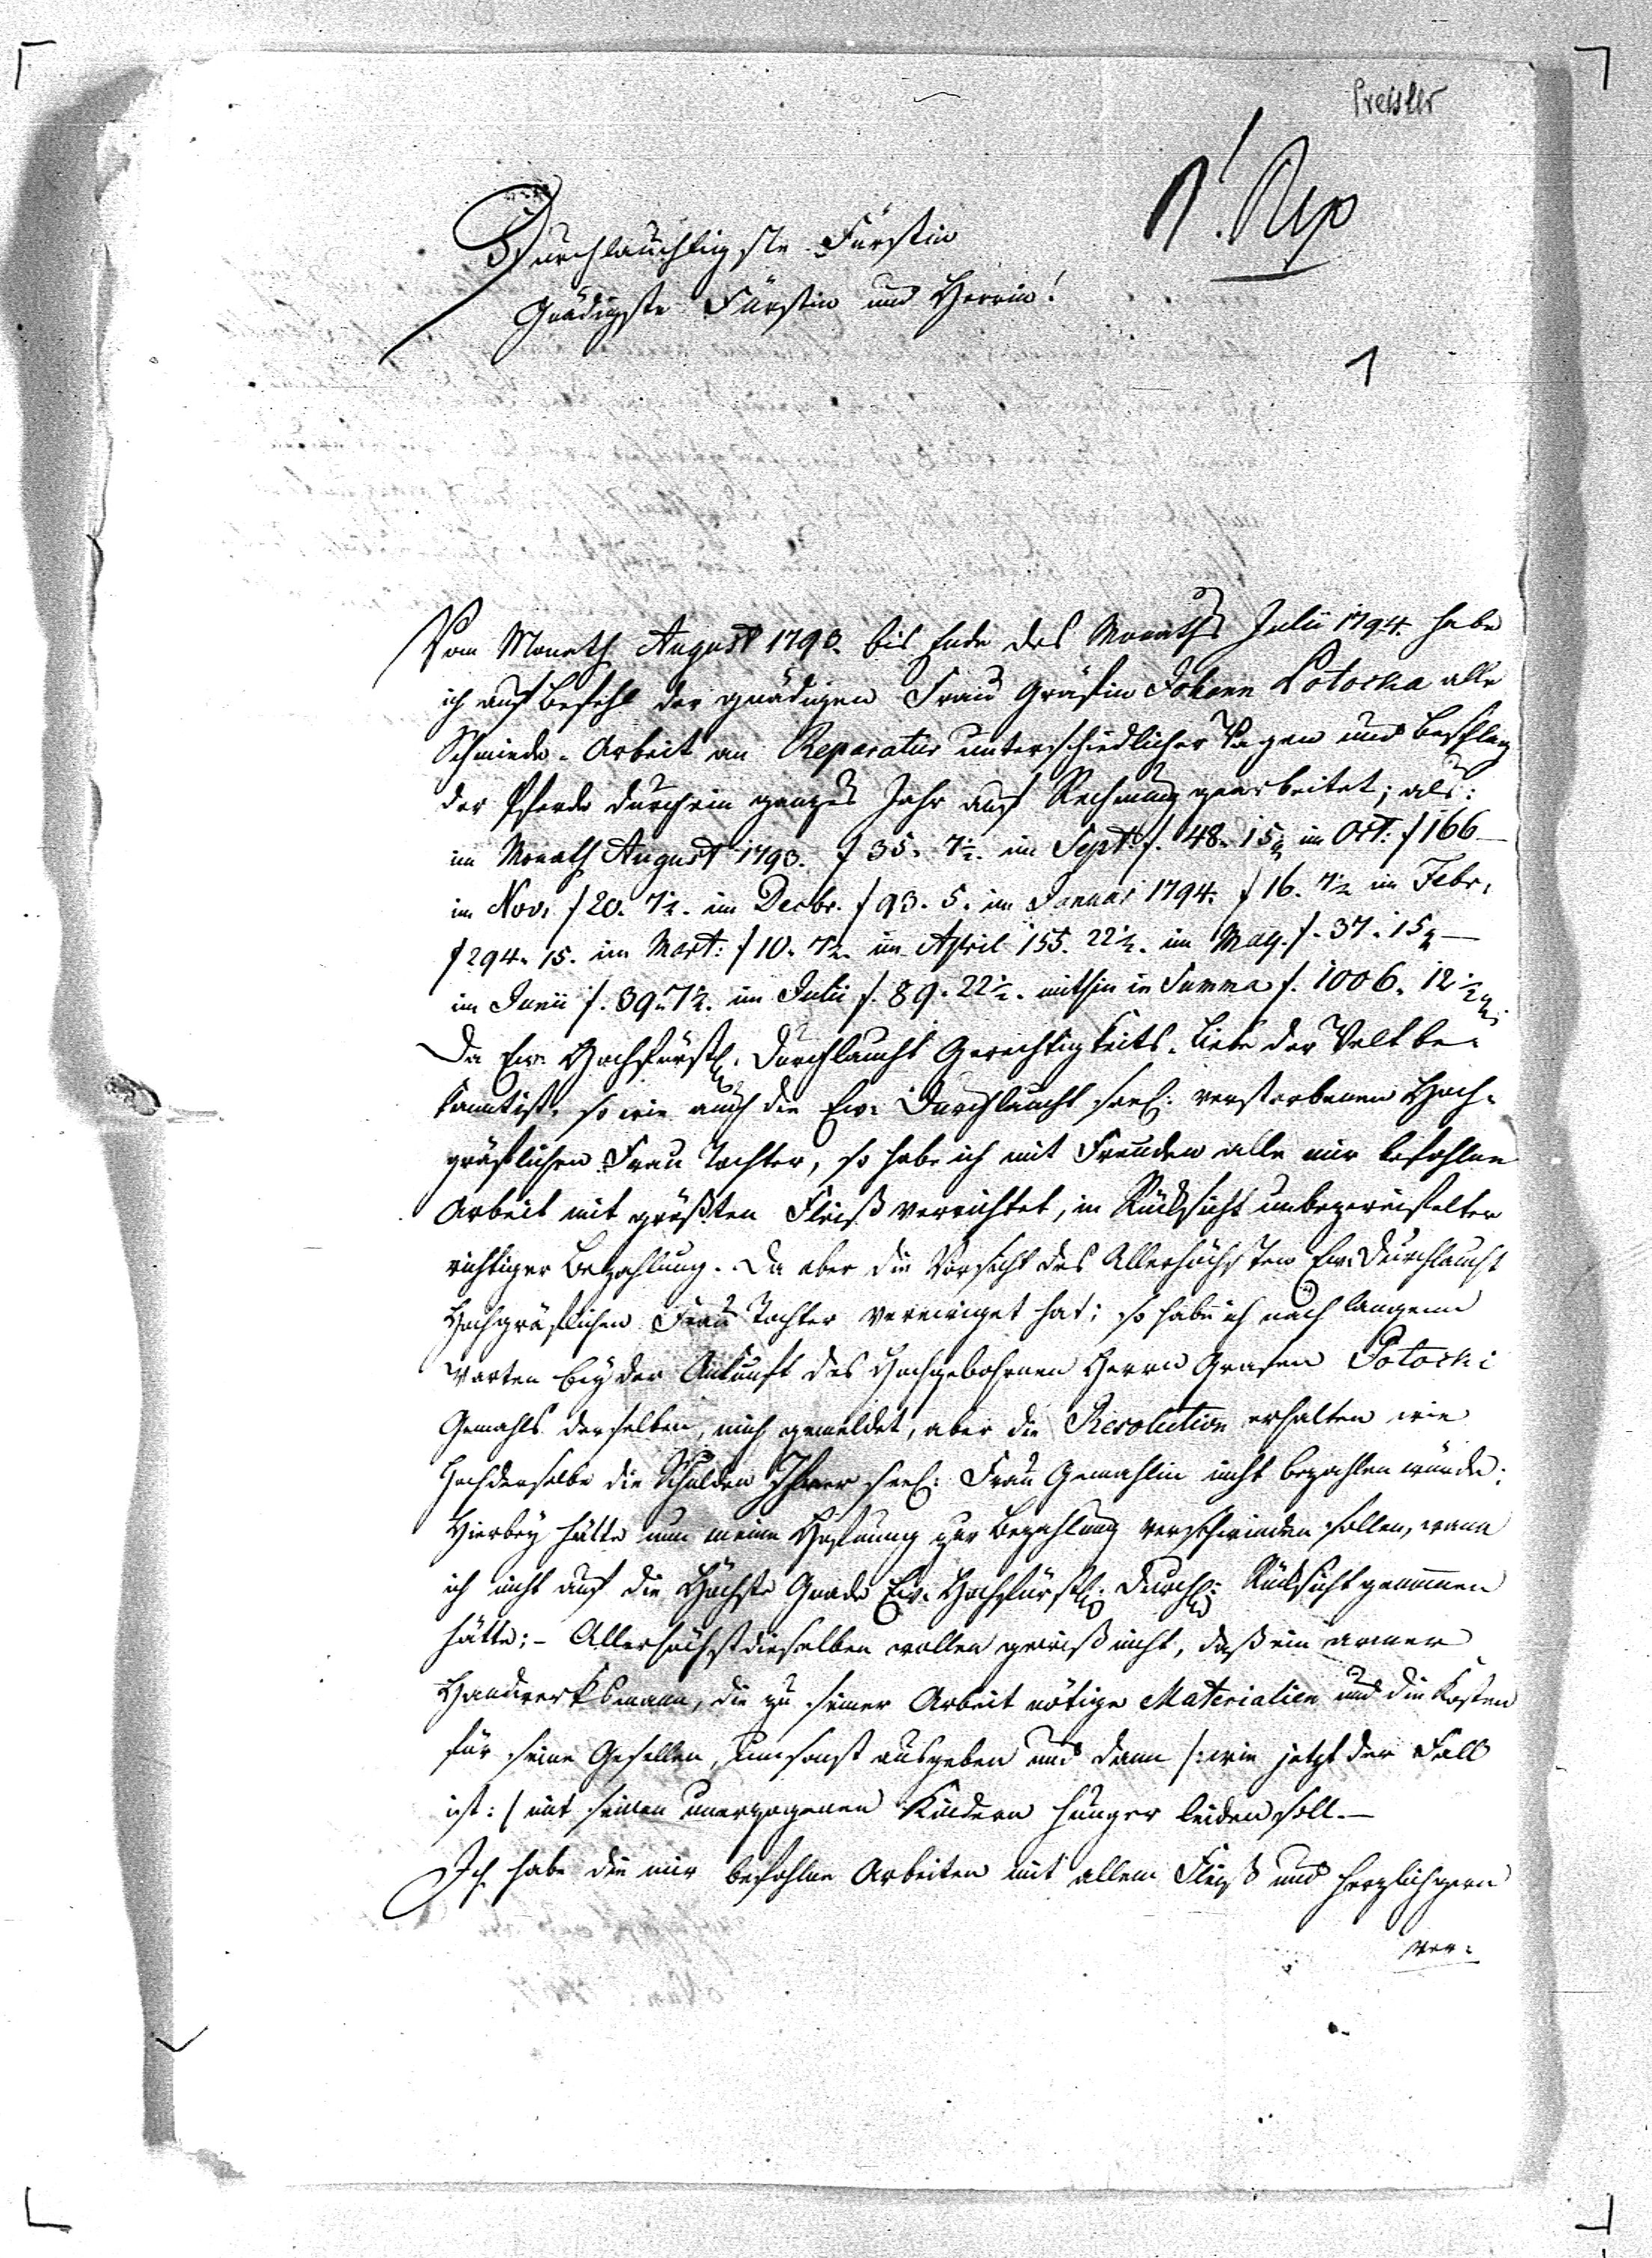 Preisler
N. Rep
Durchlauchtigste Fürstin
Gnädigste Fürstin und Herrin!
1
Vom Monath August 1793. bis Ende des Monaths Julii 1794. habe
ich auf Befehl der gnädigen Frau Gräfin Johann Potocka alle
Schmiede-Arbeit an Reparatur unterschiedlicher Wagen und Beschlag
der Pferde durch ein ganzes Jahr auf Rechnung gearbeitet; als:
im Monath August 1793. f 35. 7½. im Sept. f. 48. 15 im Oct: f 166 —
im Nov. f 20. 7½. im Decbr. f 93. 5. im Januar 1794. f 16. 7½ im Febr.
f 294. 15. im Mart: f 10. 7½. im April 155. 22½. im May. f. 37. 15 —
im Junii f. 39. 7½. im Julii f. 89. 22½. mithin in Summa f. 1006. 12½
Da Ew. Hochfürstl. Durchlaucht Gerechtigkeits-Liebe der Welt be-
kannt ist, so wie auch die Ew. Durchlaucht seel: verstorbenen Hoch-
gräflichen Frau Tochter, so habe ich mit Freuden alle mir befohlne
Arbeit mit größten Fleiß verrichtet, in Rücksicht unbezweifelter
richtiger Bezahlung. Da aber die Vorsicht des Allerhöchsten Ew. Durchlaucht
Hochgräflichen Frau Tochter verewiget hat; so habe ich nach langem
Warten bey der Ankunft des Hochgebohrnen Herrn Grafen Potocki
Gemahls derselben, mich gemeldet, aber die Resolution erhalten wie
Hochderselbe die Schulden Ihrer seel: Frau Gemahlin nicht bezahlen würde:
Hierbey hätte nun meine Hofnung zur Bezahlung verschwinden sollen, wann
ich nicht auf die Höchste Gnade Ew. Hochfürstl: Durchl: Rücksicht genommen
hätte; - Allerhöchstdieselben wollen gewiß nicht, daß ein armer
Handwerksmann, die zu seiner Arbeit nötige Materialien und die Kosten
für seine Gesellen, umsonst ausgeben und dann /: wie jetzt der Fall
ist: / mit seinen unerzogenen Kindern Hunger leiden soll. —
Ich habe die mir befohlne Arbeiten mit allem Fleiß und herzlich gern
ver-